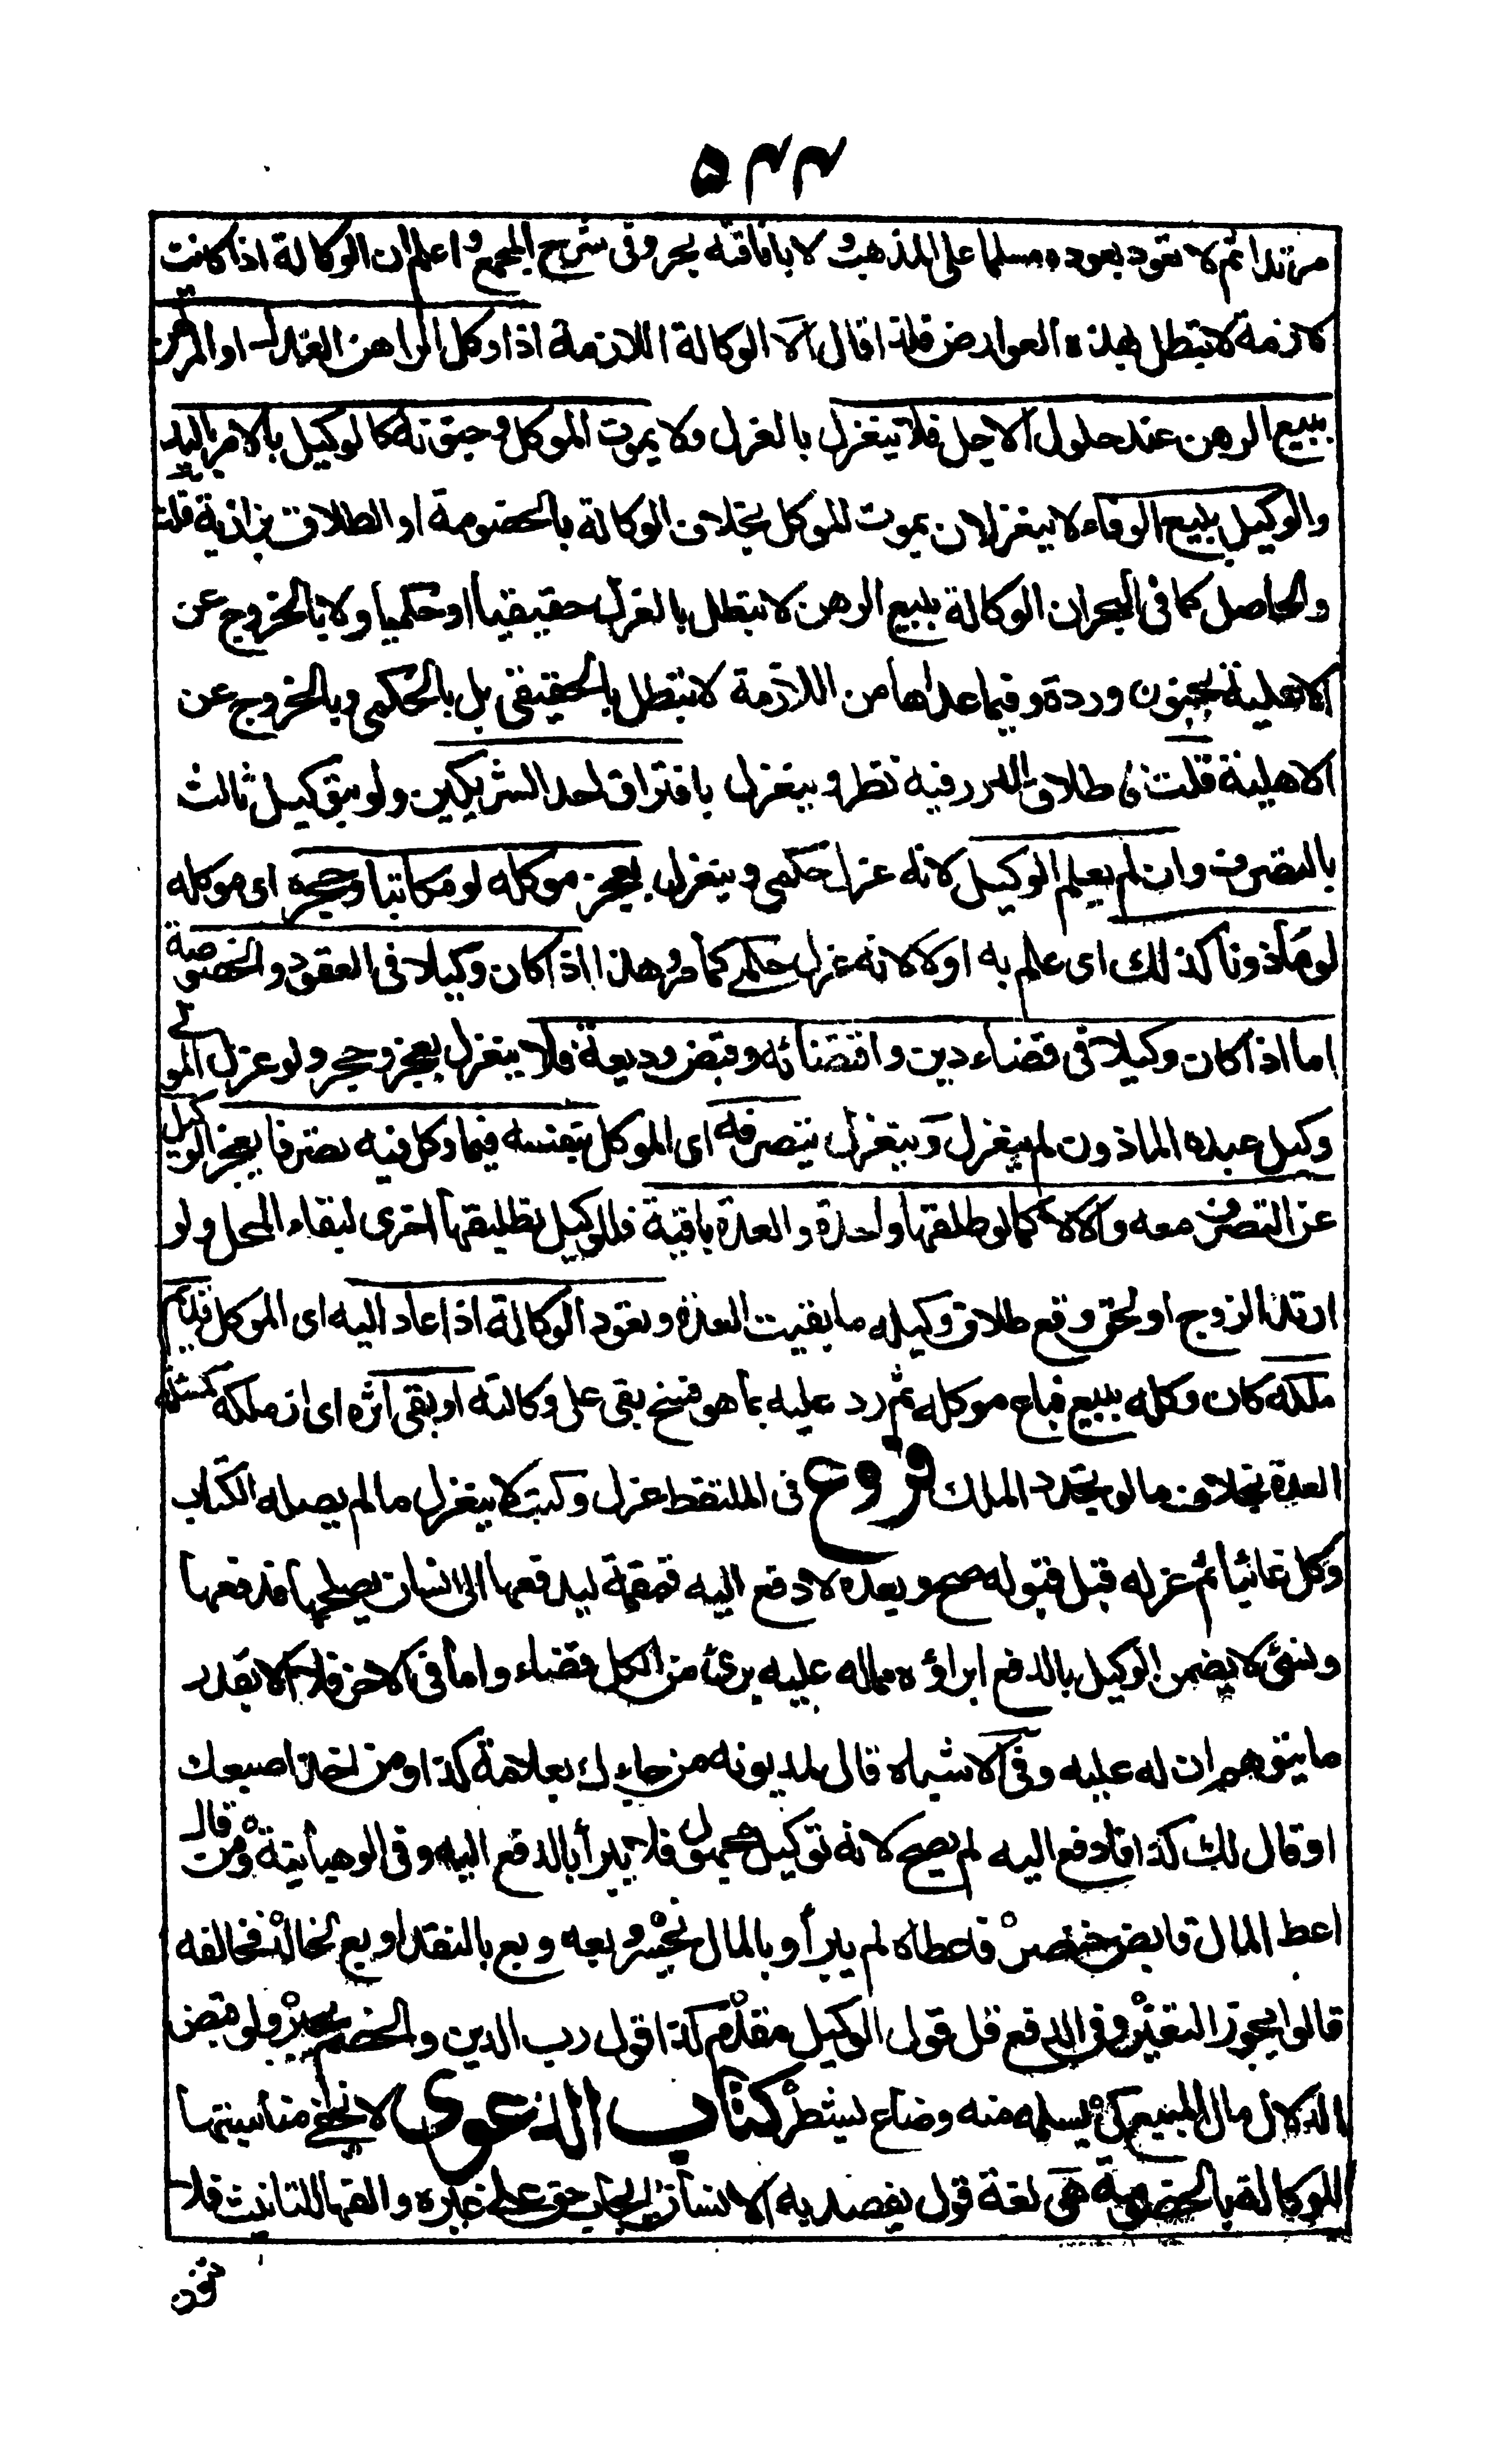 ٥٢٢
مرتدا ثم لا تعود بعوده مسلما على المذهب ولا بافاقته بحر وفى شرح المجمع واعلم ان الوكالة اذا كانت
لازمة لا تبطل بهذه العوارض فلذا قال الا الوكالة اللازمة اذا وكل الراهن العدل او المرتهن
ببيع الرهن عند حلول الاجل فلا ينعزل بالعزل ولا بموت الموكل وجنونه كالوكيل بالامر باليد
والوكيل ببيع الوفاء لا ينعزلان بموت الموكل بخلاف الوكالة بالخصومة او الطلاق بزازية قلت
والحاصل كما فى البحر ان الوكالة ببيع الرهن لا تبطل بالعزل حقيقيا او حكميا ولا بالخروج عن
الاهلية بجنون وردة وفيما عداها من اللازمة لا تبطل بالحقيقى بل بالحكمى وبالخروج عن
الاهلية قلت فاطلاق الدرر فيه نظر وينعزل بافتراق احد الشريكين ولو بتوكيل ثالث
بالتصرف وان لم يعلم الوكيل لانه عزل حكمى وينعزل بعجز موكله لو مكاتبا وحجره اى موكله
لو مأذونا كذلك اى علم به اولا لانه عزل حكمى كما مر وهذا اذا كان وكيلا فى العقود والخصومة
اما اذا كان وكيلا فى قضاء دين واقتضائه وقبض وديعة فلا ينعزل بعجز وحجر ولو عزل المولى
وكيل عبده الماذون لم ينعزل وينعزل بتصرفه اى الموكل بنفسه فيما وكل فيه تصرفا يعجز الوكيل
عن التصرف معه والا لا كما لو طلقها واحدة والعدة باقية فللوكيل تطليقها اخرى لبقاء المحل ولو
ارتد الزوج او لحق وقع طلاق وكيله ما بقيت العدة وتعود الوكالة اذا عاد اليه اى الموكل قديم
ملكه كان وكله ببيع فباع موكله ثم رد عليه بما هو فسخ بقى على وكالته او بقى اثره اى اثر ملكه كمسئلة
العدة بخلاف ما لو تجدد الملك فروع فى الملتقط عزل وكتب لا ينعزل ما لم يصله الكتاب
وكل غائبا ثم عزله قبل قبوله صح وبعده لا دفع اليه قمقمة ليدفعها الى انسان يصلحها فدفعها
ونسى لا يضمن الوكيل بالدفع ابراؤه مما له عليه برئ من الكل قضاء واما فى الاخرة فلا الا بقدر
ما يتوهم ان له عليه وفى الاشباه قال لمديونه من جاءك بعلامة كذا ومن اخذ اصبعك
او قال لك كذا فادفع اليه لم يصح لانه توكيل مجهول فلا يبرأ بالدفع اليه وفى الوهبانية ومن قال
اعط المال قابض خنصر فاعطاه لم يبرأ وبالمال يخسر وبعه وبع بالنقد او بع لخالد فخالفه
قالوا يجوز التغير وفى الدفع قل قول الوكيل مقدم كذا قول رب الدين والخصم يجبر ولو قبض
الدلال مال المبيع كى يسلمه منه وضاع يشطر كتاب الدعوى لا تخفى مناسبتها
للوكالة بالخصومة هى لغة قول يقصد به الانسان ايجاب حق على غيره والفها للتانيث فلا
تنون